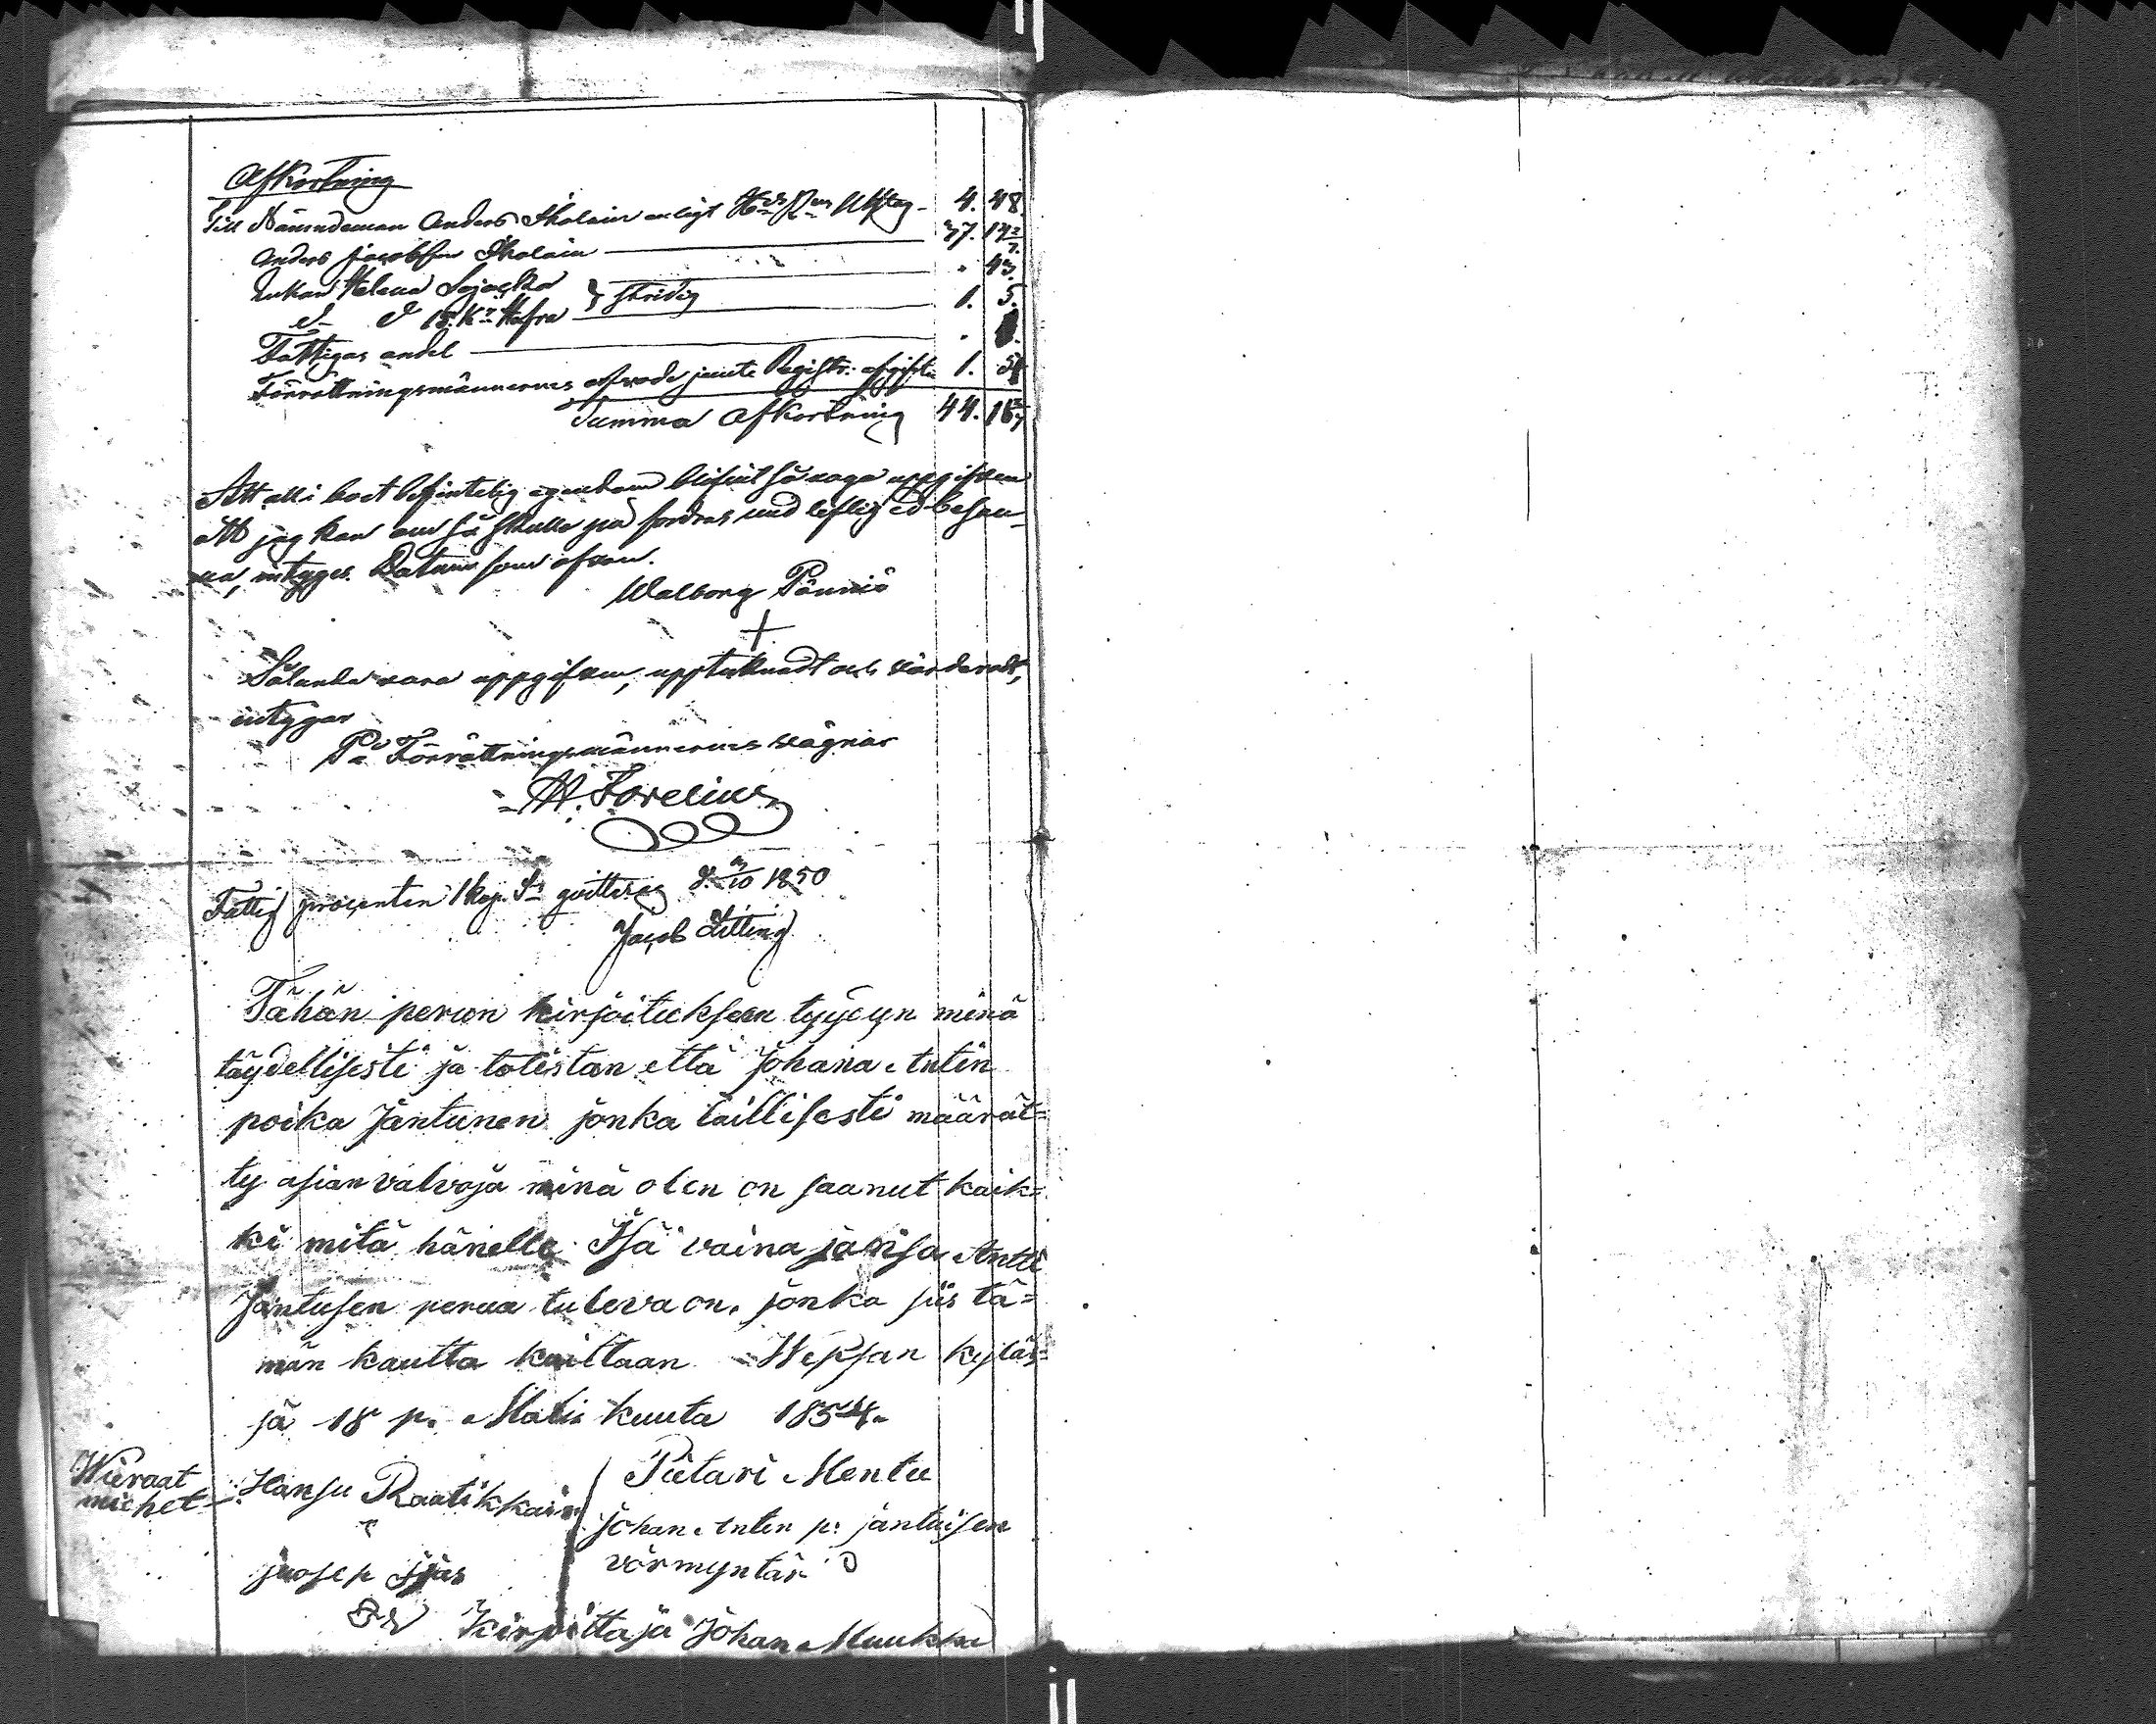 Afkortning
Till Nämndeman Anders Ikolain enligt Hds Rns Utslag - 4. 48.
Anders Jacobsson Ikolain 37. 14 2/7.
Enkan Helena Lajaska " 43.
d d 15 Kr Hafra } stridig 1. 5.
Fattigas andel "
Förrättningsmännernes arfvode jemte Registr: afgiften 1.
Summa Afkortning 44. 16
Att all i boet befintelig egendom blifvit så noga uppgifven
att jag kan om så skulle på fordras med liflig ed besan-
na, intygas. Datum som ofvan.
Walborg Pänniö
+
Sålunda vara uppgifvne, upptecknadt och värderadt,
intygar
På Förrättningsmännernes vägnar
M. Forelius
Fattig procenten 1 kop. Sr qvitteras d. 3/10 1850
Jacob Litting
Tähän perun kirjoitukseen tyydyn minä
täydellisesti ja totistan että Johana Antin
poika Jäntunen jonka laillisesti määrät=
ty asian valvoja minä olen on saanut kaik=
ki mitä hänelle Isä vaina jansa Antti
Jäntusen perua tuleva on. jonka siis tä=
män kautta kuittaan Wepsan kyläs=
sä 18 p. Matis kuuta 1854.
Wieraat michet: Hansu Raatikkain
Juosep Ijäs
Pietari Mentu
Johan Anten p: jäntuisen
vörmyntär
Kirjoittaja Johan Muukka